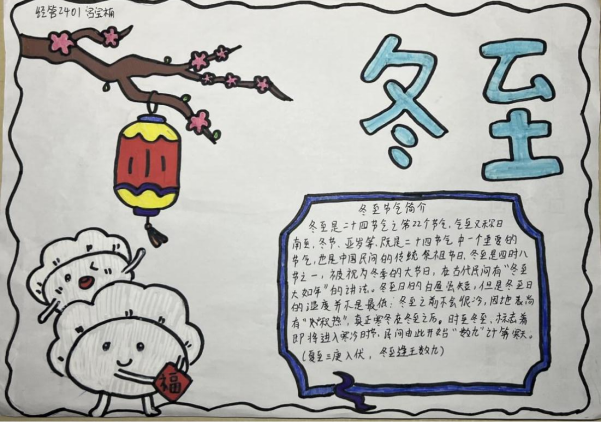 经管2401
冬至
冬至节气简介
冬至是二十四节气之第22个节气,冬至又称日
南至、冬节、亚岁等,既是二十四节气中一个重要的
节气,也是中国民间的传统祭祖节日,冬至是四时八
节之一,被视为冬季的大节日,在古代民间有“冬至
大如年”的讲法。冬至日的白昼虽短,但是冬至日
的温度并不是最低;冬至之前不会很冷,因地表尚
有“积热”,真正寒冬在冬至之后。时至冬至,标志着
即将进入寒冷时节,民间由此开始“数九”计算寒天。
(夏至三庚入伏,冬至逢壬数九)
福